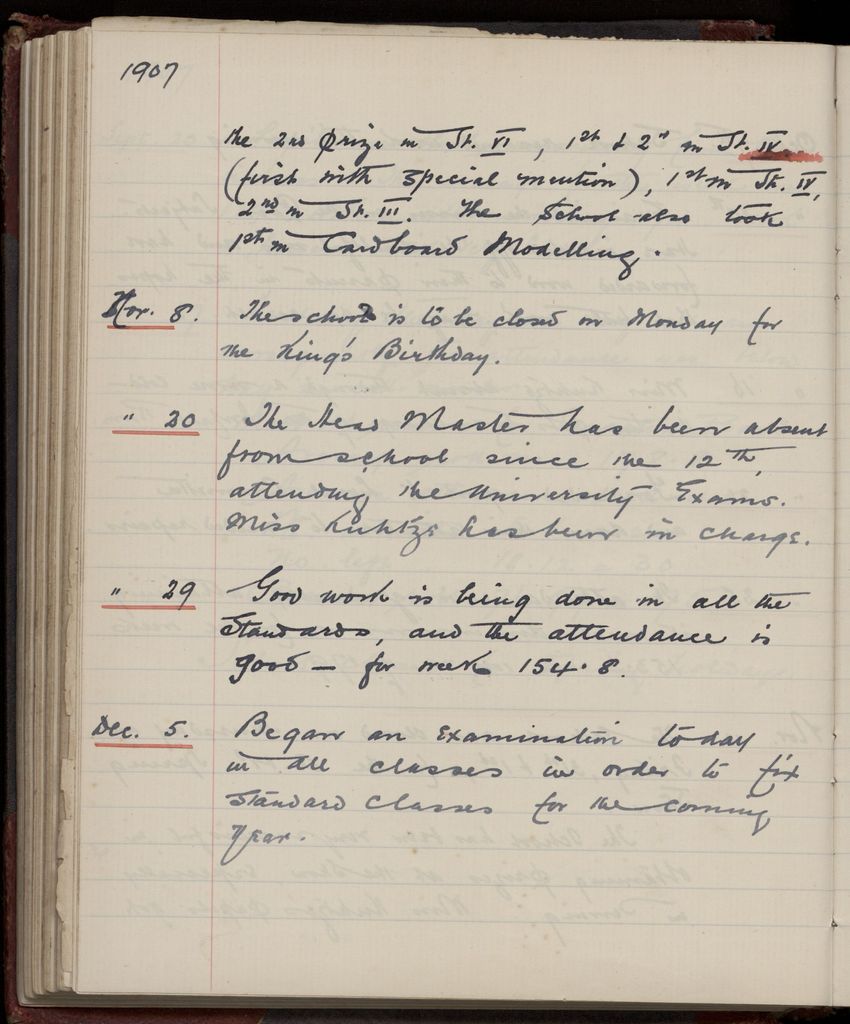 1907
the 2nd prize in St. VI, 1st & 2nd in St. IV
(first with special mention), 1st in St. IV,
2nd in St. III. The School also took
1st in Cardboard Modelling.
Nov. 8. The school is to be closed on Monday for
the King's Birthday.
" 20 The Head Master has been absent
from school since the 12th,
attending the University Exams.
Miss Kuhtze has been in charge.
" 29 Good work is being done in all the
Standards, and the attendance is
good — for week 154.8.
Dec. 5. Began an examination today
in all classes in order to fix
Standard Classes for the coming
Year.